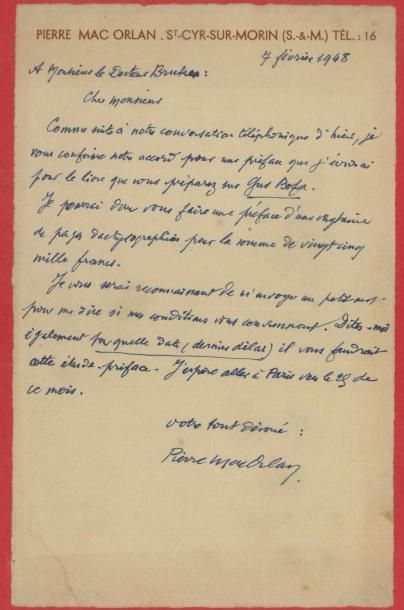 PIERRE MAC ORLAN . ST-CYR-SUR-MORIN (S.-&-M.) TÉL. : 16
7 février 1948
A Monsieur le Docteur
Cher Monsieur
Comme suite à notre conversation téléphonique d'hier, je
vous confirme notre accord pour une préface que j'écrirai
pour le livre que vous préparez sur Gus Bofa.
Je pourrai donc vous faire une préface d'une vingtaine
de pages dactylographiées pour la somme de vingt cinq
mille francs.
Je vous serais reconnaissant de m'envoyer un petit mot
pour me dire si mes conditions vous conviennent. Dites-moi
également pour quelle date (dernier délai) il vous faudrait
cette étude-préface - J'espère aller à Paris vers le 25 de
ce mois.
votre tout dévoué :
Pierre Mac Orlan